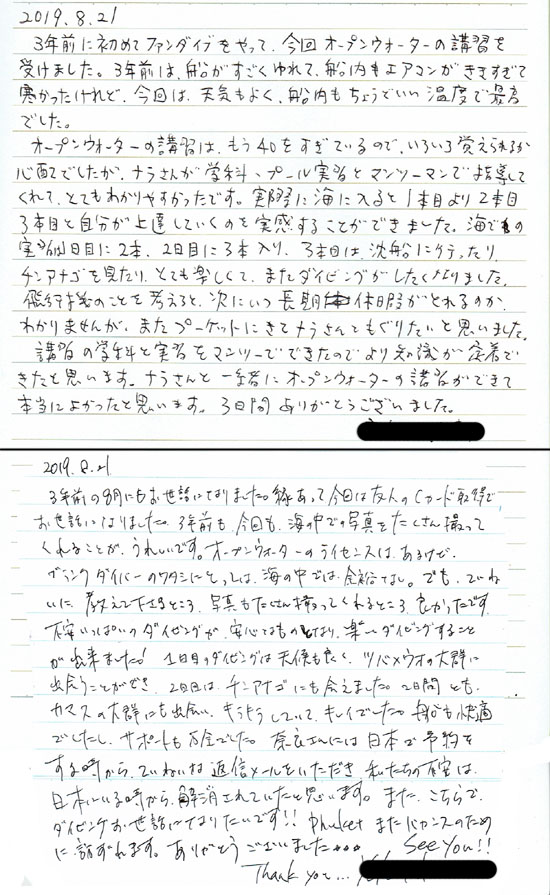 2019.8.21
3年前に初めてファンダイブをやって、今回オープンウォーターの講習を
受けました。3年前は、船がすごくゆれて、船内もエアコンがききすぎて
寒かったけれど、今回は、天気もよく、船内もちょうどいい温度で最高
でした。
オープンウォーターの講習は、もう40をすぎているので、いろいろ覚えられるか
心配でしたが、ナラさんが学科・プール実習とマンツーマンで指導して
くれて、とてもわかりやすかったです。実際に海に入ると1本目より2本目
3本目と自分が上達していくのを実感することができました。海での
実習は1日目に2本、2日目に3本入り、3本目は、沈船に行ったり、
チンアナゴを見たり、とても楽しくて、またダイビングがしたくなりました。
飛行機のことを考えると、次にいつ長期休暇がとれるのか
わかりませんが、またプーケットにきてナラさんともぐりたいと思いました。
講習の学科と実習をマンツーでできたのでより知識が定着で
きたと思います。ナラさんと一緒にオープンウォーターの講習ができて
本当によかったと思います。3日間ありがとうございました。
2019.8.21
3年前の8月にもお世話になりました。縁あって今回は友人のCカード取得で
お世話になりました。3年前も、今回も、海の中での写真をたくさん撮って
くれることが、うれしいです。オープンウォーターのライセンスは、あるけど、
ブランクダイバーのワタシにとっては、海の中では余裕なし。でも、ていね
いに教えて下さるところ、写真もたくさん撮ってくれるところ、良かったです。
不安いっぱいのダイビングが、安心なものとなり、楽しくダイビングすること
が出来ました! 1日目のダイビングは天候も良く、ツバメウオの大群に
出会うことができ、2日目は、チンアナゴにも会えました。2日間とも、
カマスの大群にも出会い、キラキラしていて、キレイでした。船も快適
でしたし、サポートも万全でした。奈良さんには日本で予約を
する時から、ていねいな返信メールをいただき、私たちの不安は、
日本にいる時から、解消されていたと思います。また、こちらで、
ダイビングお世話になりたいです!! phuket またバカンスのため
に訪ずれます。ありがとうございました。。。 See You!!
Thank you...